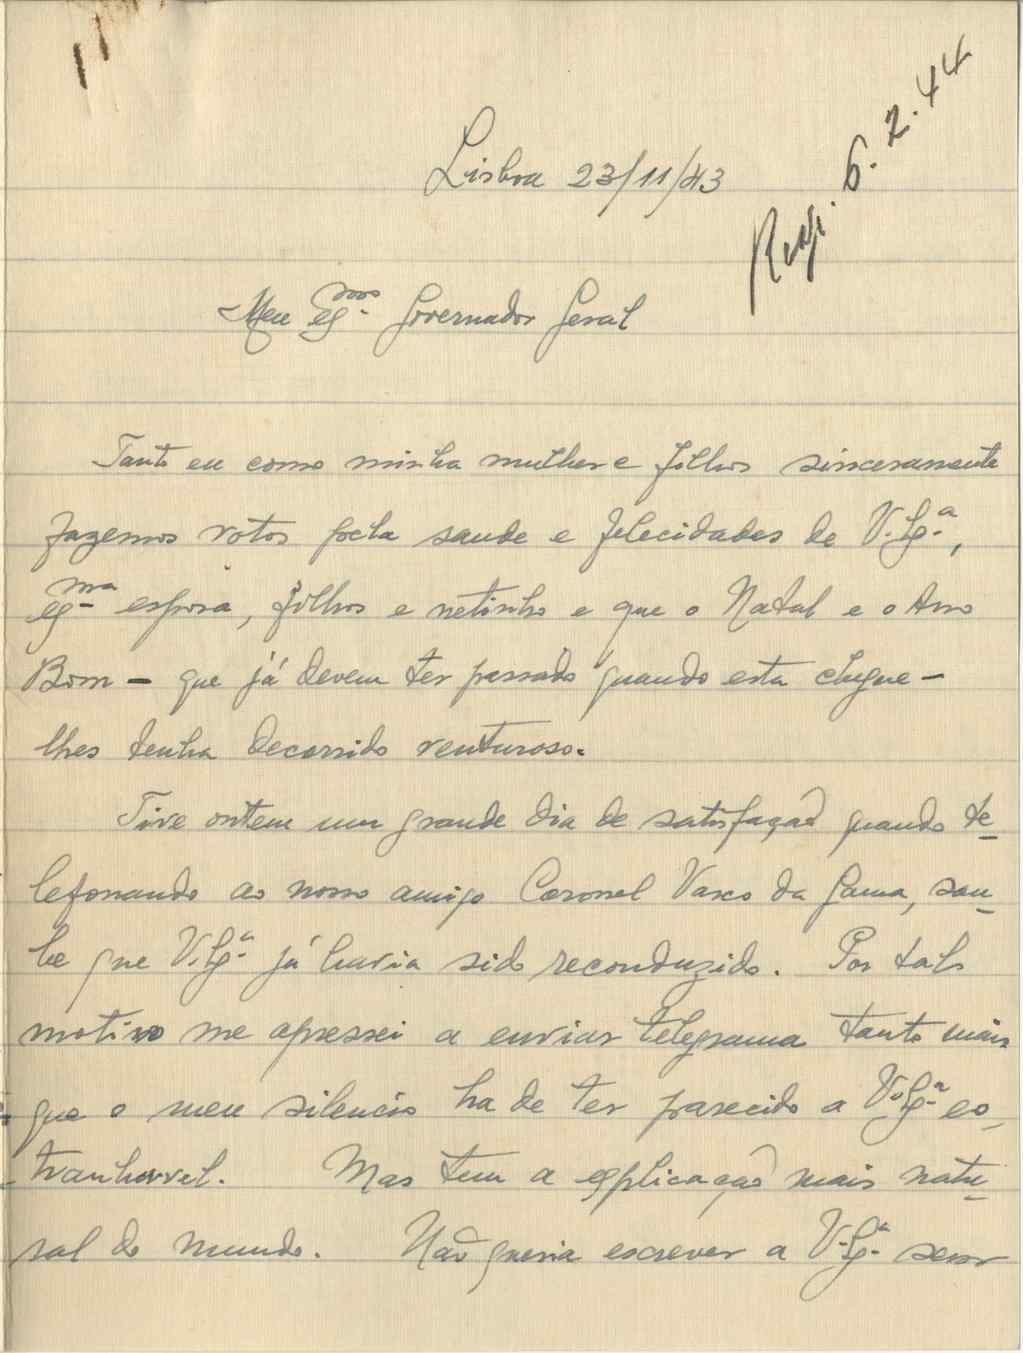 Resp. 6.2.44
Lisboa 23/11/43
Meu Exmo. Governador Geral
Tanto eu como minha mulher e filhos sinceramente
fazemos votos pela saude e felecidades de V. Exª.,
Exma. esposa, filhos e netinho e que o Natal e o Ano
Bom – que já devem ter passado quando esta chegue –
lhes tenha decorrido venturoso.
Tive ontem um grande dia de satisfação quando te-
lefonando ao nosso amigo Coronel Vasco da Gama, sou-
be que V. Exª. já havia sido reconduzido. Por tal
motivo me apressei a enviar telegrama tanto mais
que o meu silencio ha de ter parecido a V. Exª. es-
tranhavel. Mas tem a explicação mais natu-
ral do mundo. Não queria escrever a V. Exª. sem